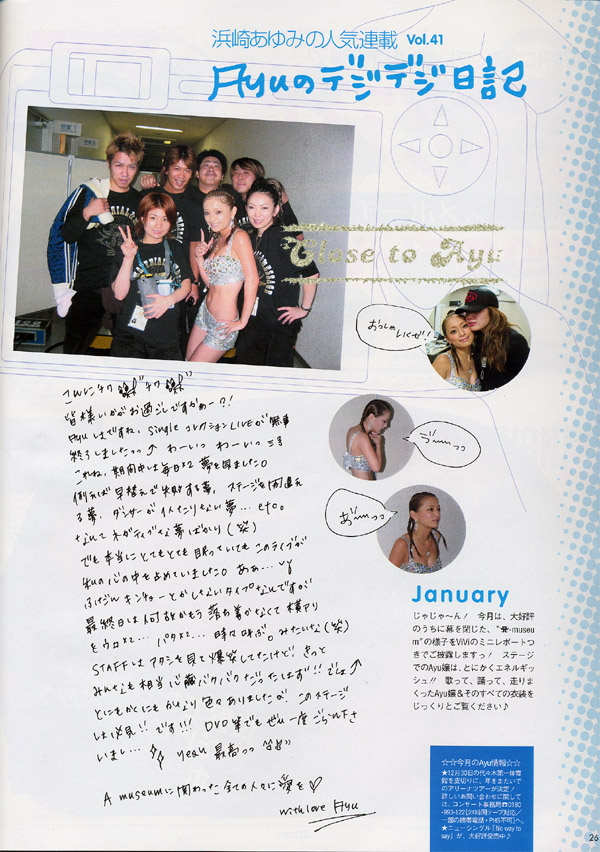 浜崎あゆみの人気連載 Vol.41
Ayuのデジデジ日記
Close to Ayu
おっしゃ
いくぜ!
こんにチワ
皆様いかがお過ごしですかぁー?!
Ayuはですね、Singleコレクション LIVEが無事
終了しましたっっ↑ わーいっ わーいっ
これね、期間中は毎日×2 夢を見ました。
例えば 早替えで失敗する夢、ステージを間違え
る夢、ダンサーが1人たりない夢… etc。
なんてネガティブな夢ばかり(笑)
でも本当にとてもとても 眠っていても このライブが
私の心の中を占めていました。あぁ…
ふだんキンチョーとかしないタイプなんですが
最終日は何故かもう落ち着かなくて 横アリ
をウロ×2… パタ×2… 時々 叫ぶ。みたいな(笑)
STAFFはアタシを見て爆笑してたけど きっと
みんなも相当心臓バクバクだったはず!!でしょ↑
とにもかくにもかなり色々ありましたが このステージ
は必見!! です!!! DVD等でもぜひ一度ごらん下さ
いまし… yeah 最高っっ
A museumに関わった全ての人々に愛を♡
with love Ayu
January
じゃじゃ〜ん! 今月は、大好評
のうちに幕を閉じた、“A-museu
m”の様子をViViのミニレポートつ
きでご披露しますっ! ステージ
でのAyu嬢は、とにかくエネルギ
ッシュ!! 歌って、踊って、走りま
くったAyu嬢&そのすべての衣装を
じっくりとご覧ください♪
☆☆今月のAyu情報☆☆
★12月30日の代々木第一体育
館を皮切りに、年をまたいで
のアリーナツアーが決定!
詳しいお問い合わせに関して
は、コンサート事務局☎0180
-993-122[24時間テープ対応/
一部の携帯電話・PHS不可]へ。
★ニューシングル「No way to
say」が、大好評発売中♪
26